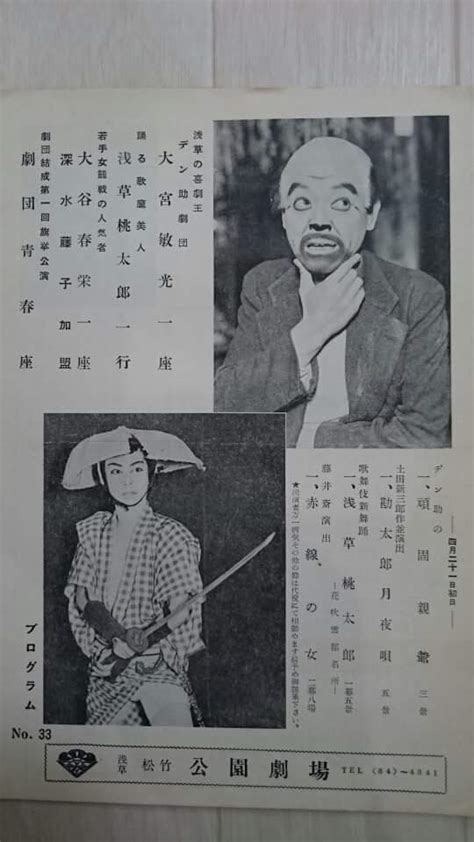 浅草の喜劇王
デン助劇団
大宮敏光一座
踊る歌麿美人
浅草桃太郎一行
若手女剣戟の人気者
大谷春栄一座
深水藤子加盟
劇団結成第一回旗挙公演
劇団青春座
四月二十一日初日
デン助の
一、頑固親爺 三景
土田新三郎作並演出
一、勘太郎月夜唄 五景
歌舞伎新舞踊
一、浅草桃太郎 一幕五景
藤井斎演出
一、赤線の女 一幕八場
プログラム
No. 33
浅草 松竹 公園劇場 TEL (84)～4841